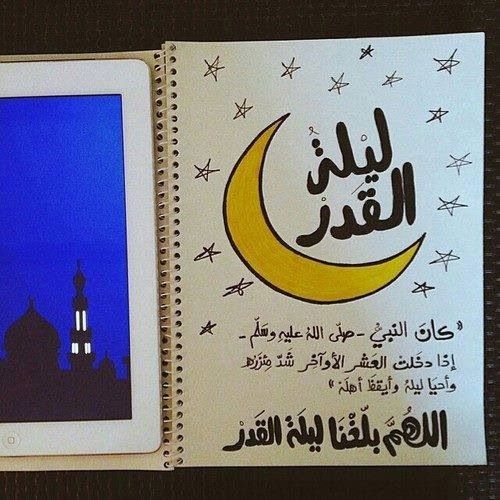 ليلةُ
القَدرْ
« كان النبيُّ - صلّى اللهُ عليهِ وسَلّم -
إذا دخَلتْ العَشر الأوآخر شَدّ مئزرهُ
وأحيَا ليلهُ وأيقظَ أهلهُ »
اللهُمَّ بلّغْنَا ليلَة القَدَرْ